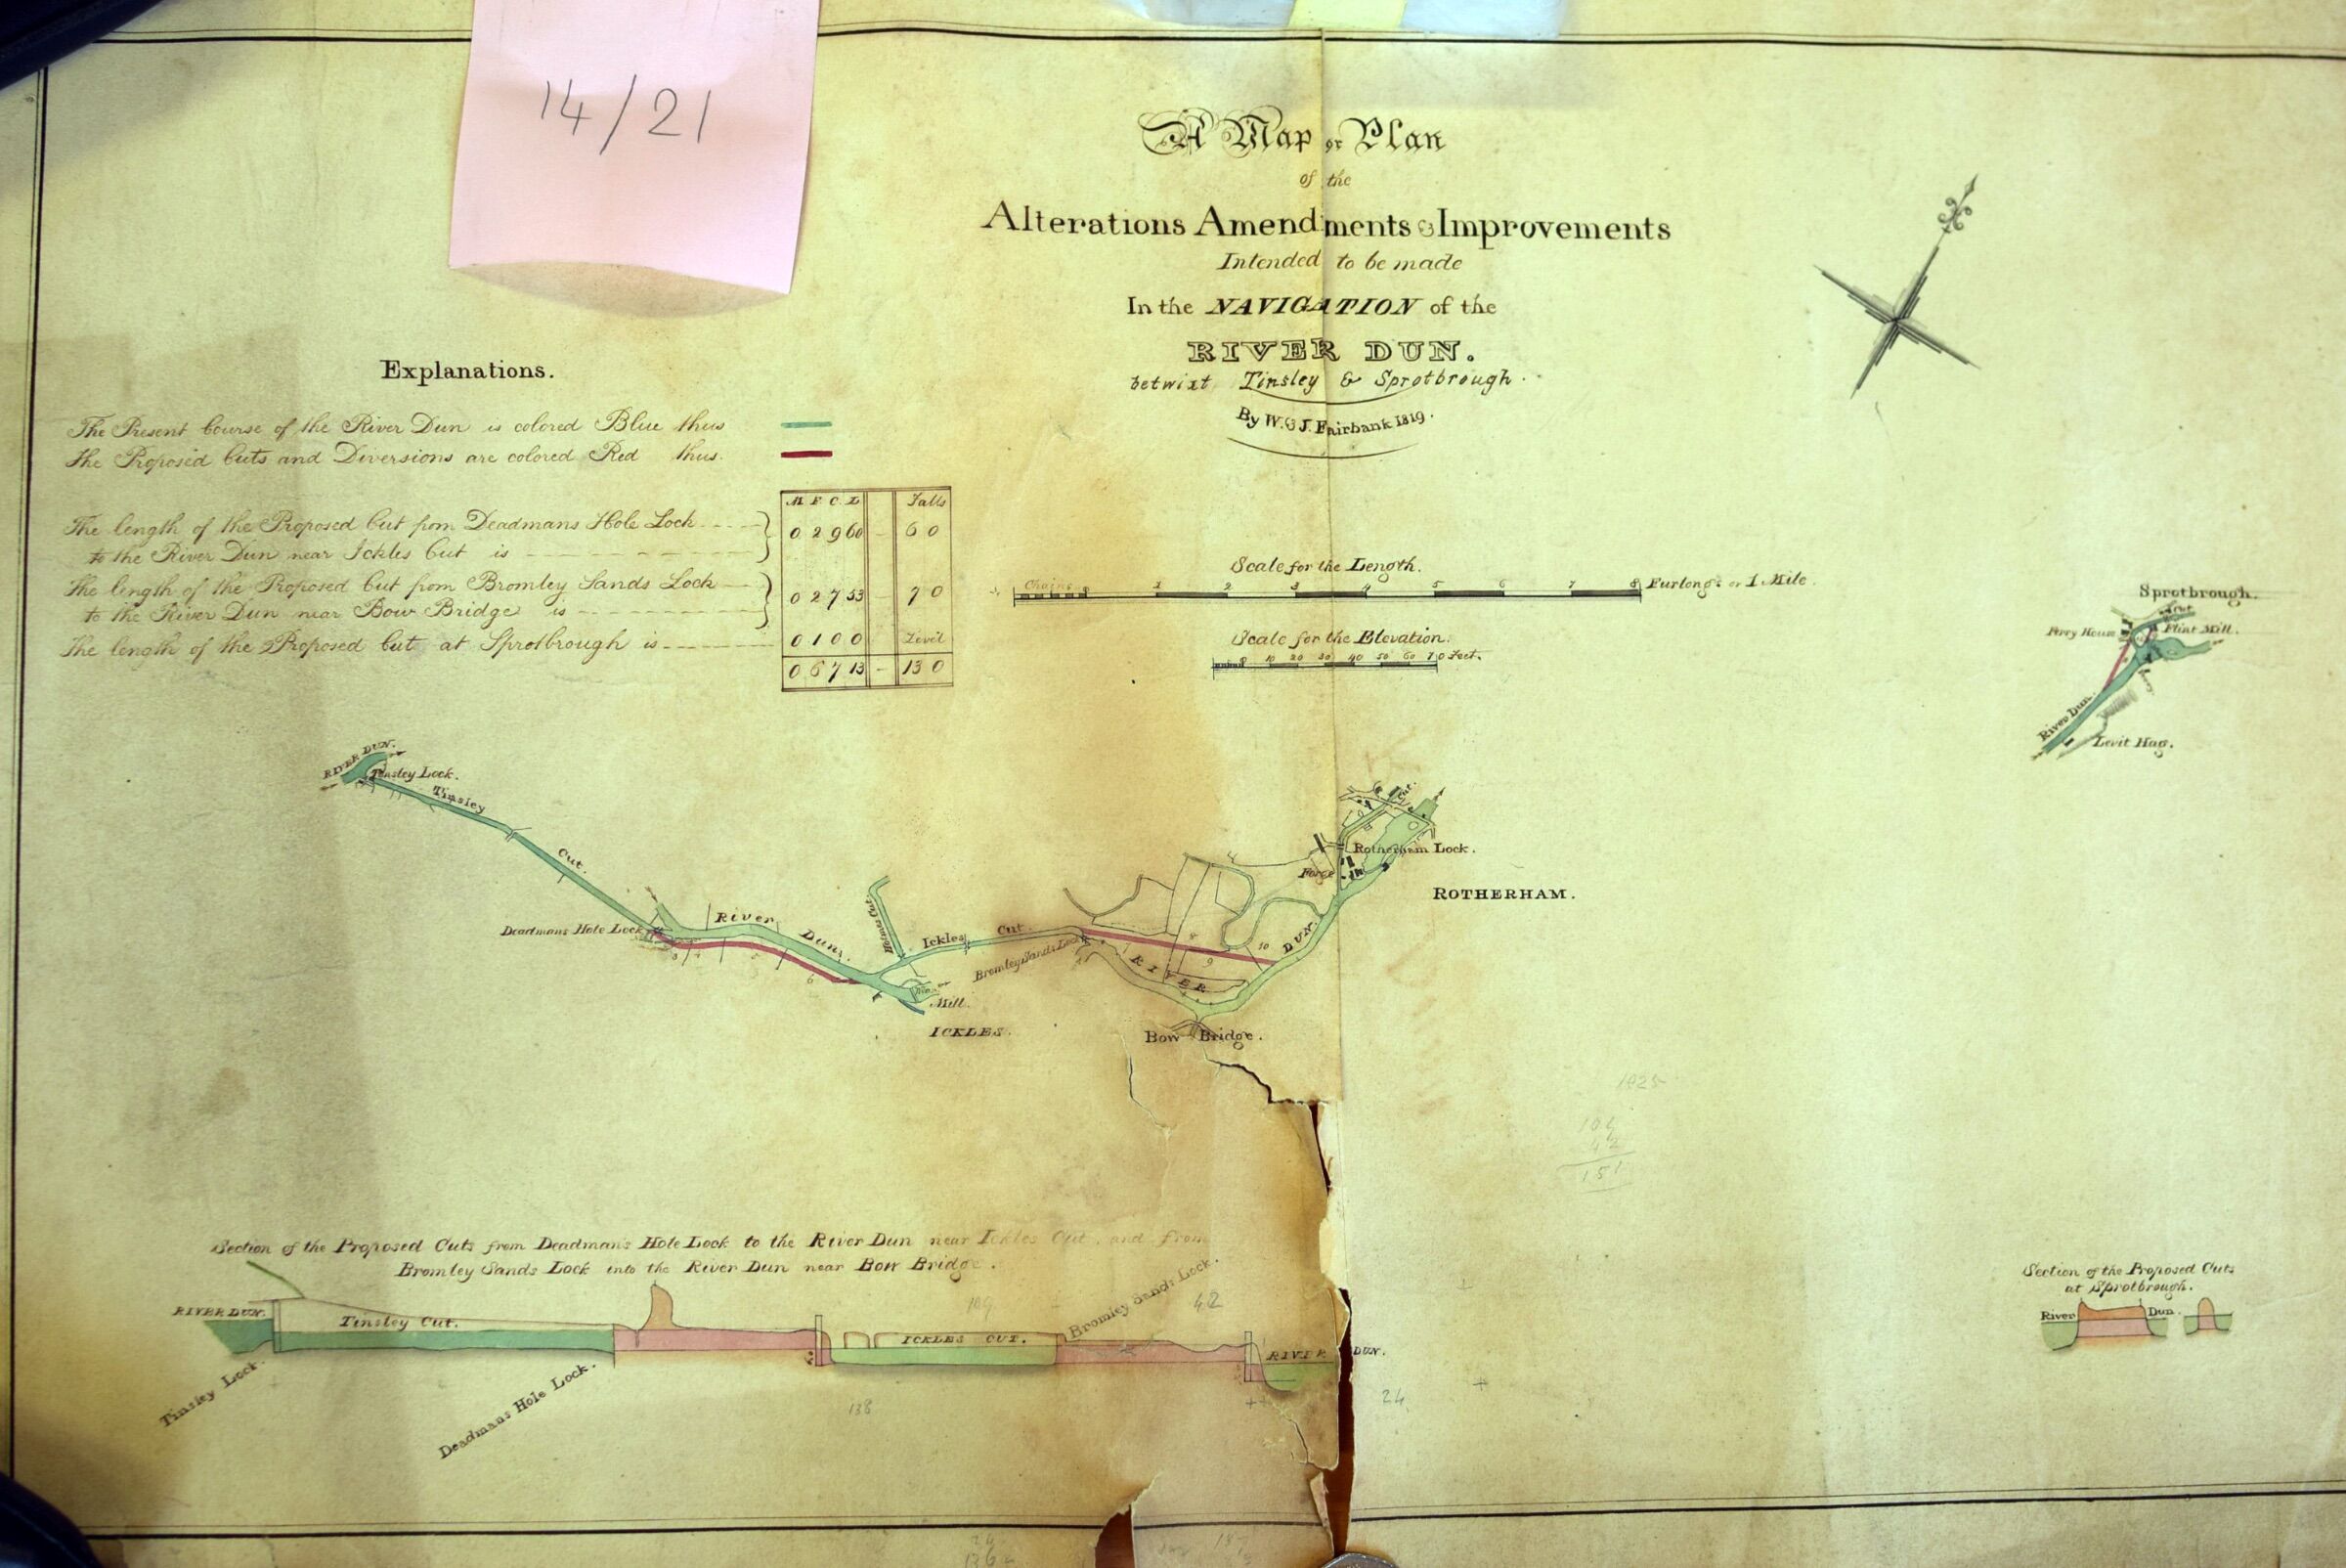 14/21
A Map or Plan
of the
Alterations Amendments & Improvements
Intended to be made
In the NAVIGATION of the
RIVER DUN.
betwixt Tinsley & Sprotbrough.
By W. & J. Fairbank 1819.
Explanations.
The Present Course of the River Dun is colored Blue thus
The Proposed Cuts and Diversions are colored Red thus.
M F C L Falls
The length of the Proposed Cut from Deadmans Hole Lock
to the River Dun near Ickles Cut is 0 2 9 60 6 0
The length of the Proposed Cut from Bromley Sands Lock
to the River Dun near Bow Bridge is 0 2 7 53 7 0
The length of the Proposed Cut at Sprotbrough is 0 1 0 0 Level
0 6 7 13 13 0
Scale for the Length.
Chains 1 2 3 4 5 6 7 8 Furlongs or 1 Mile.
Scale for the Elevation.
10 20 30 40 50 60 70 Feet.
Sprotbrough.
Cut
Ferry House
Flint Mill.
River Dun.
Levit Hag.
RIVER DUN.
Tinsley Lock.
Tinsley
Cut.
Deadmans Hole Lock
River
Dun.
Holmes Cut
Ickles
Cut
Bromley Sands Lock
Mill.
ICKLES.
RIVER
DUN.
8
9
10
5
6
Bow Bridge.
Cut.
Rotherham Lock.
Forge
ROTHERHAM.
1825
151
Section of the Proposed Cuts from Deadman's Hole Lock to the River Dun near Ickles Cut, and from
Bromley Sands Lock into the River Dun near Bow Bridge.
RIVER DUN.
Tinsley Cut.
109
Bromley Sands Lock.
42
ICKLES CUT.
RIVER DUN.
Tinsley Lock.
Deadmans Hole Lock.
138
24
Section of the Proposed Cuts
at Sprotbrough.
River Dun.